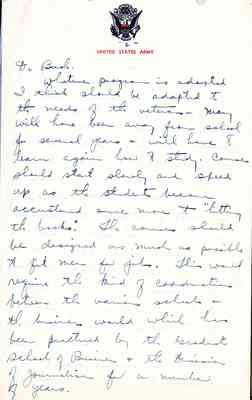 UNITED STATES ARMY
Dr. Bush.
Whatever program is adopted
I think should be adapted to
the needs of the veteran - many
will have been away from school
for several years & will have to
learn again how to study. Courses
should start slowly and speed
up as the students become
accustomed once more to "hitting
the books." The courses should
be designed as much as possible
to fit men for jobs. This would
require the kind of coordination
between the various schools &
the business world which has
been practiced by the Graduate
School of Business & the Division
of Journalism for a number
of years.